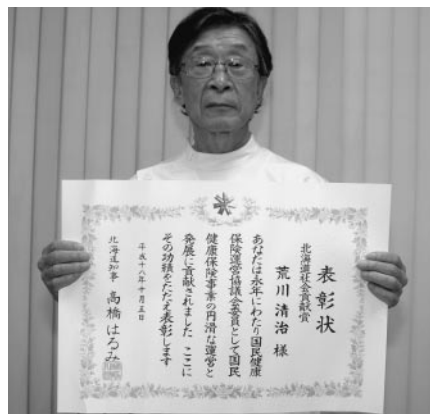 表彰状
北海道社会貢献賞
荒川清治 様
あなたは永年にわたり国民健康
保険運営協議会委員として国民
健康保険事業の円滑な運営と
発展に貢献されました ここに
その功績をたたえ表彰します
平成十八年十月五日
北海道知事 高橋はるみ